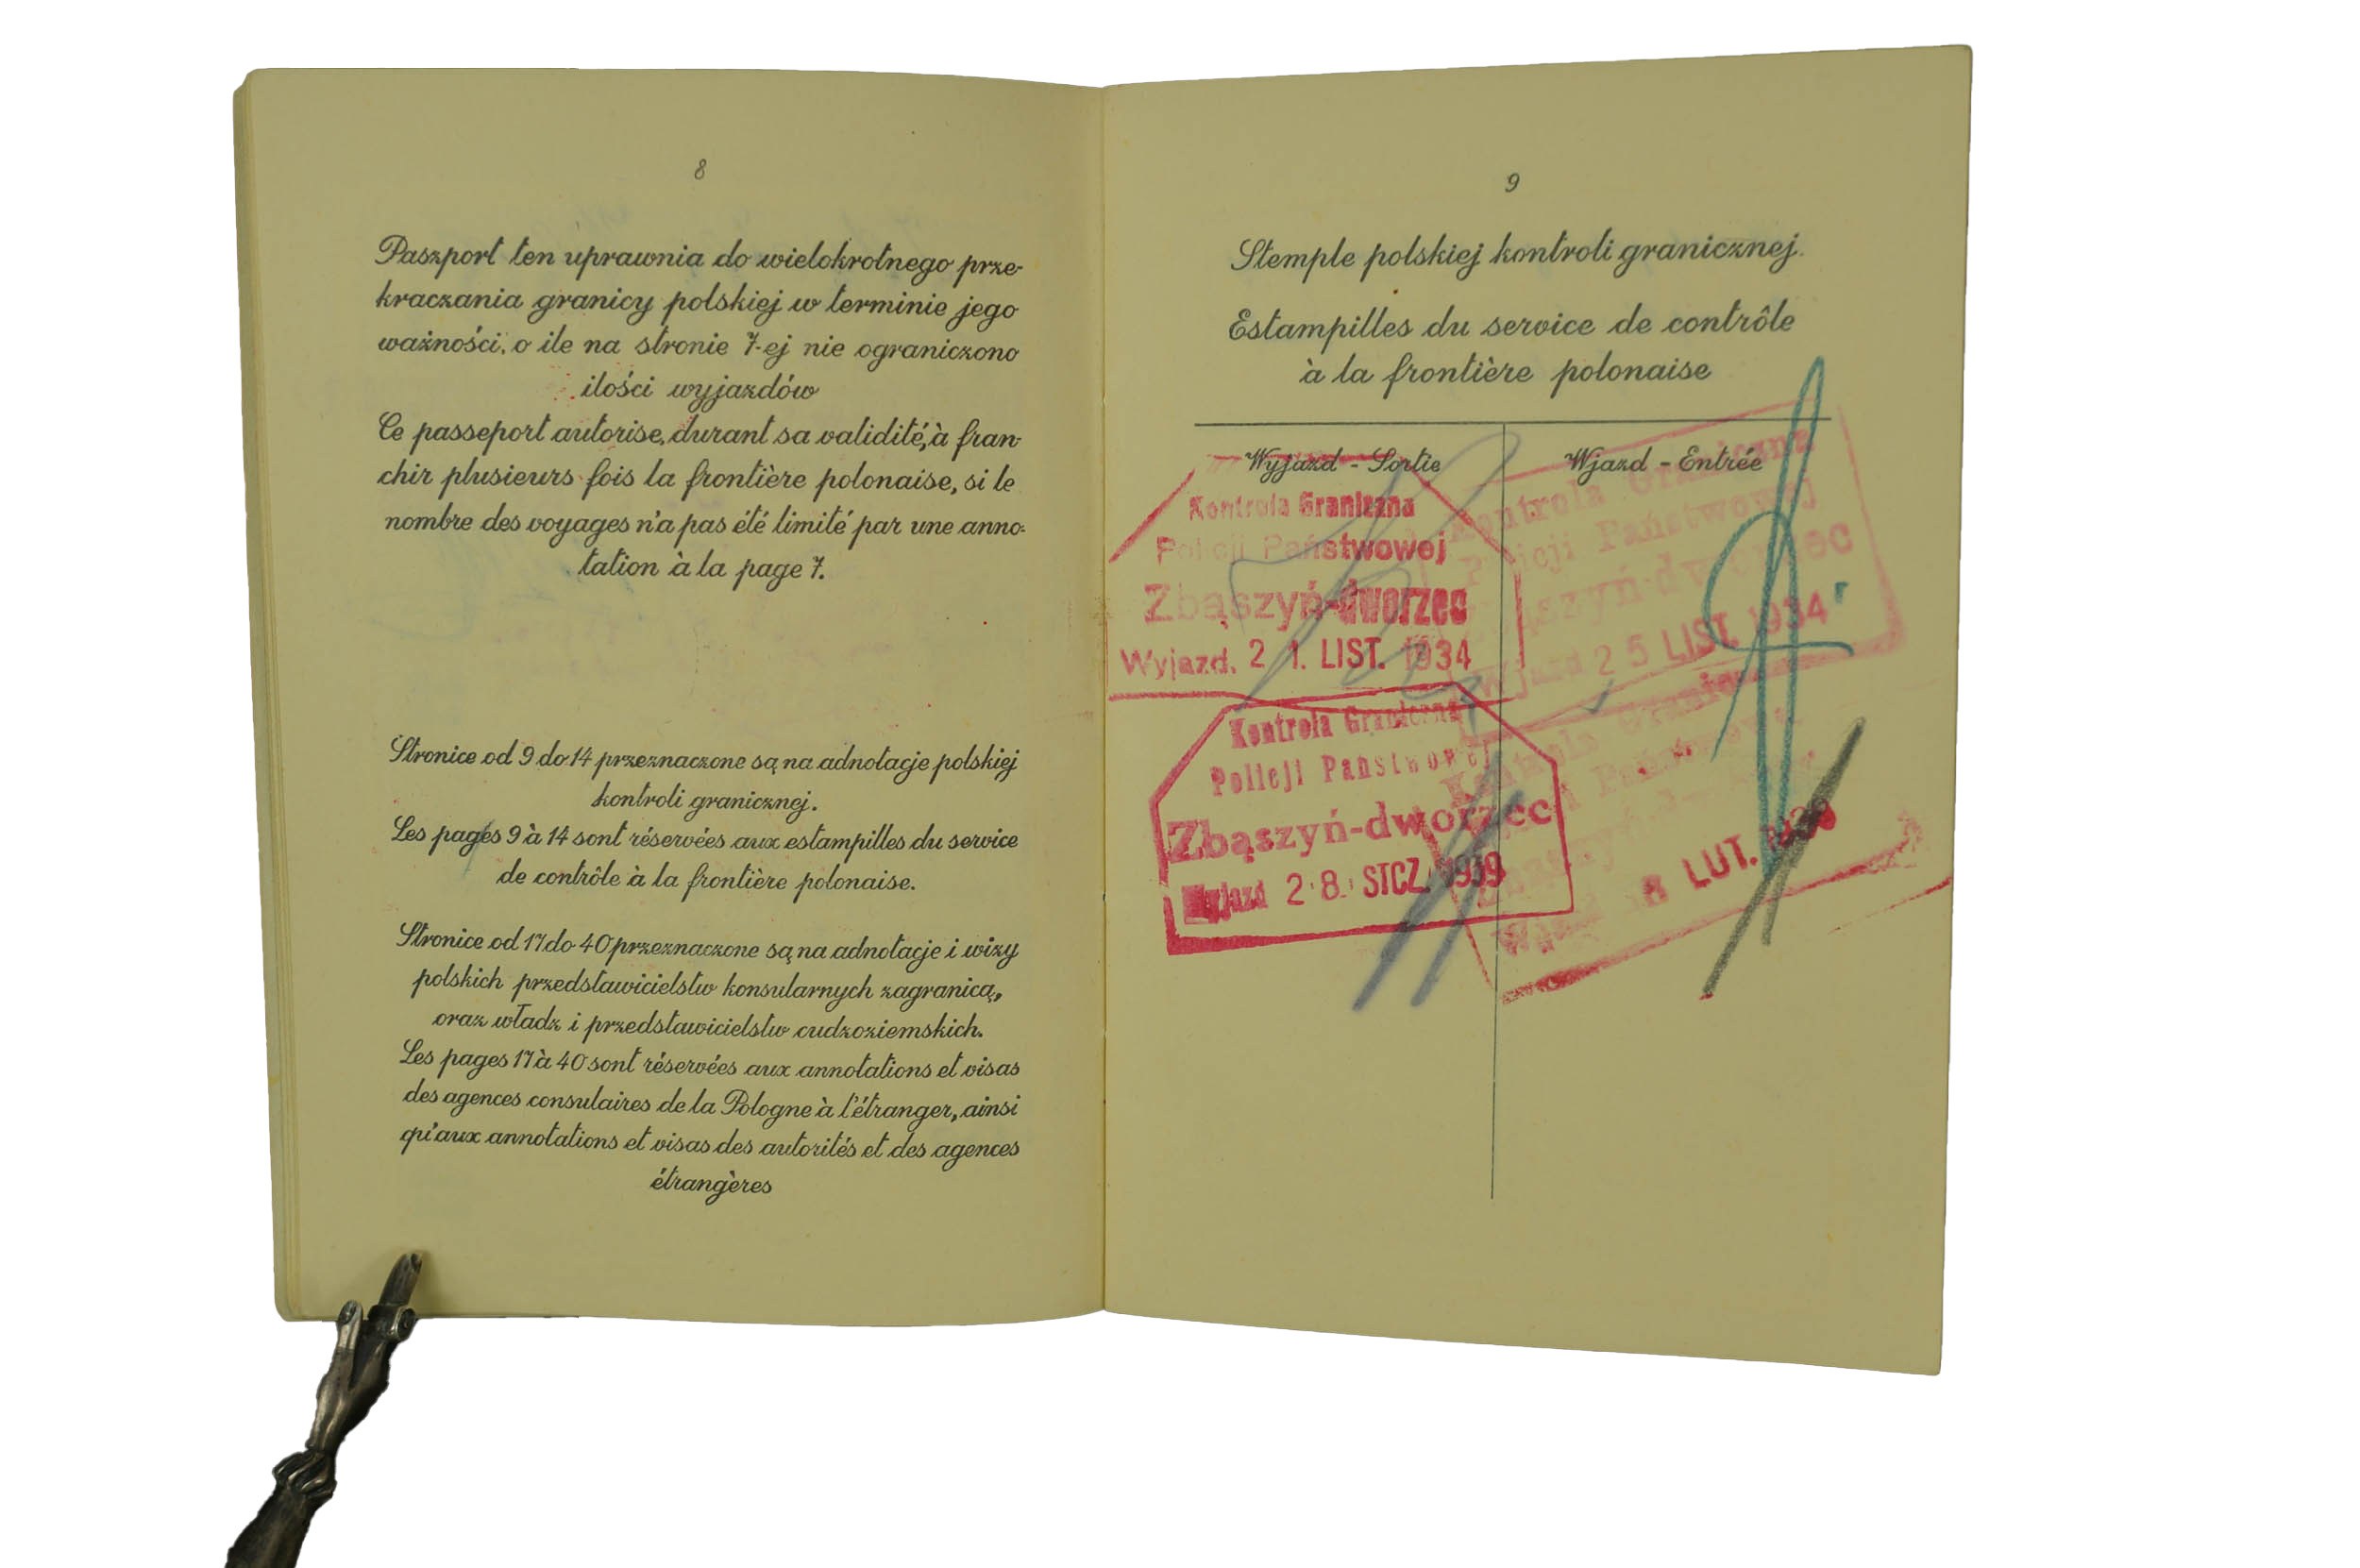 8
Paszport ten uprawnia do wielokrotnego prze-
kraczania granicy polskiej w terminie jego
ważności, o ile na stronie 7-ej nie ograniczono
ilości wyjazdów
Ce passeport autorise, durant sa validité, à fran-
chir plusieurs fois la frontière polonaise, si le
nombre des voyages n'a pas été limité par une anno-
tation à la page 7.
Stronice od 9 do 14 przeznaczone są na adnotacje polskiej
kontroli granicznej.
Les pages 9 à 14 sont réservées aux estampilles du service
de contrôle à la frontière polonaise.
Stronice od 17 do 40 przeznaczone są na adnotacje i wizy
polskich przedstawicielstw konsularnych zagranicą,
oraz władz i przedstawicielstw cudzoziemskich.
Les pages 17 à 40 sont réservées aux annotations et visas
des agences consulaires de la Pologne à l'étranger, ainsi
qu'aux annotations et visas des autorités et des agences
étrangères
9
Stemple polskiej kontroli granicznej.
Estampilles du service de contrôle
à la frontière polonaise
Wyjazd - Sortie
Wjazd - Entrée
Kontrola Graniczna
Policji Państwowej
Zbąszyń-dworzec
Wyjazd. 21. LIST. 1934
Kontrola Graniczna
Policji Państwowej
Zbąszyń-dworzec
Wjazd 25 LIST. 1934
Kontrola Graniczna
Policji Państwowej
Zbąszyń-dworzec
Wyjazd 28. STCZ. 1939
Kontrola Granicz
Państwowej
Wjazd 8 LUT. 1939